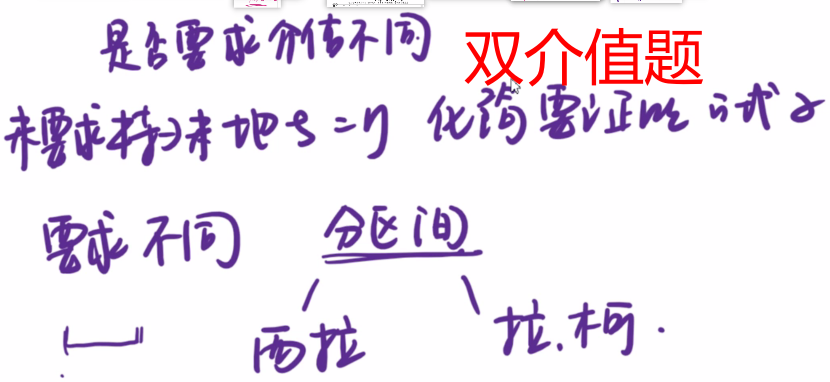 是否要求介值不同
双介值题
未要求 ξ=η 化简要证的式子
要求不同 分区间
两拉 拉.柯.